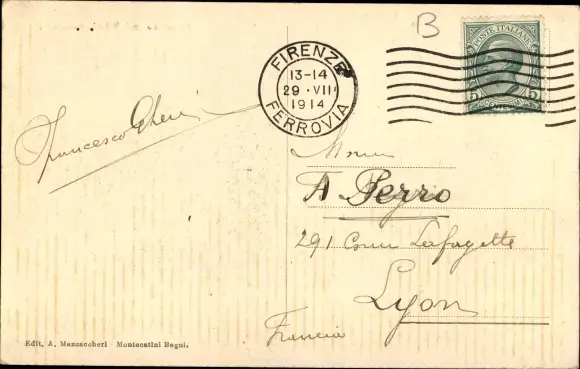 B
POSTE ITALIANE
5 5
FIRENZE
13-14
29 · VII
1914
FERROVIA
Francesco
A Perro
291 Cours Lafayette
Lyon
Francia
Edit. A. Manzaccheri - Montecatini Bagni.